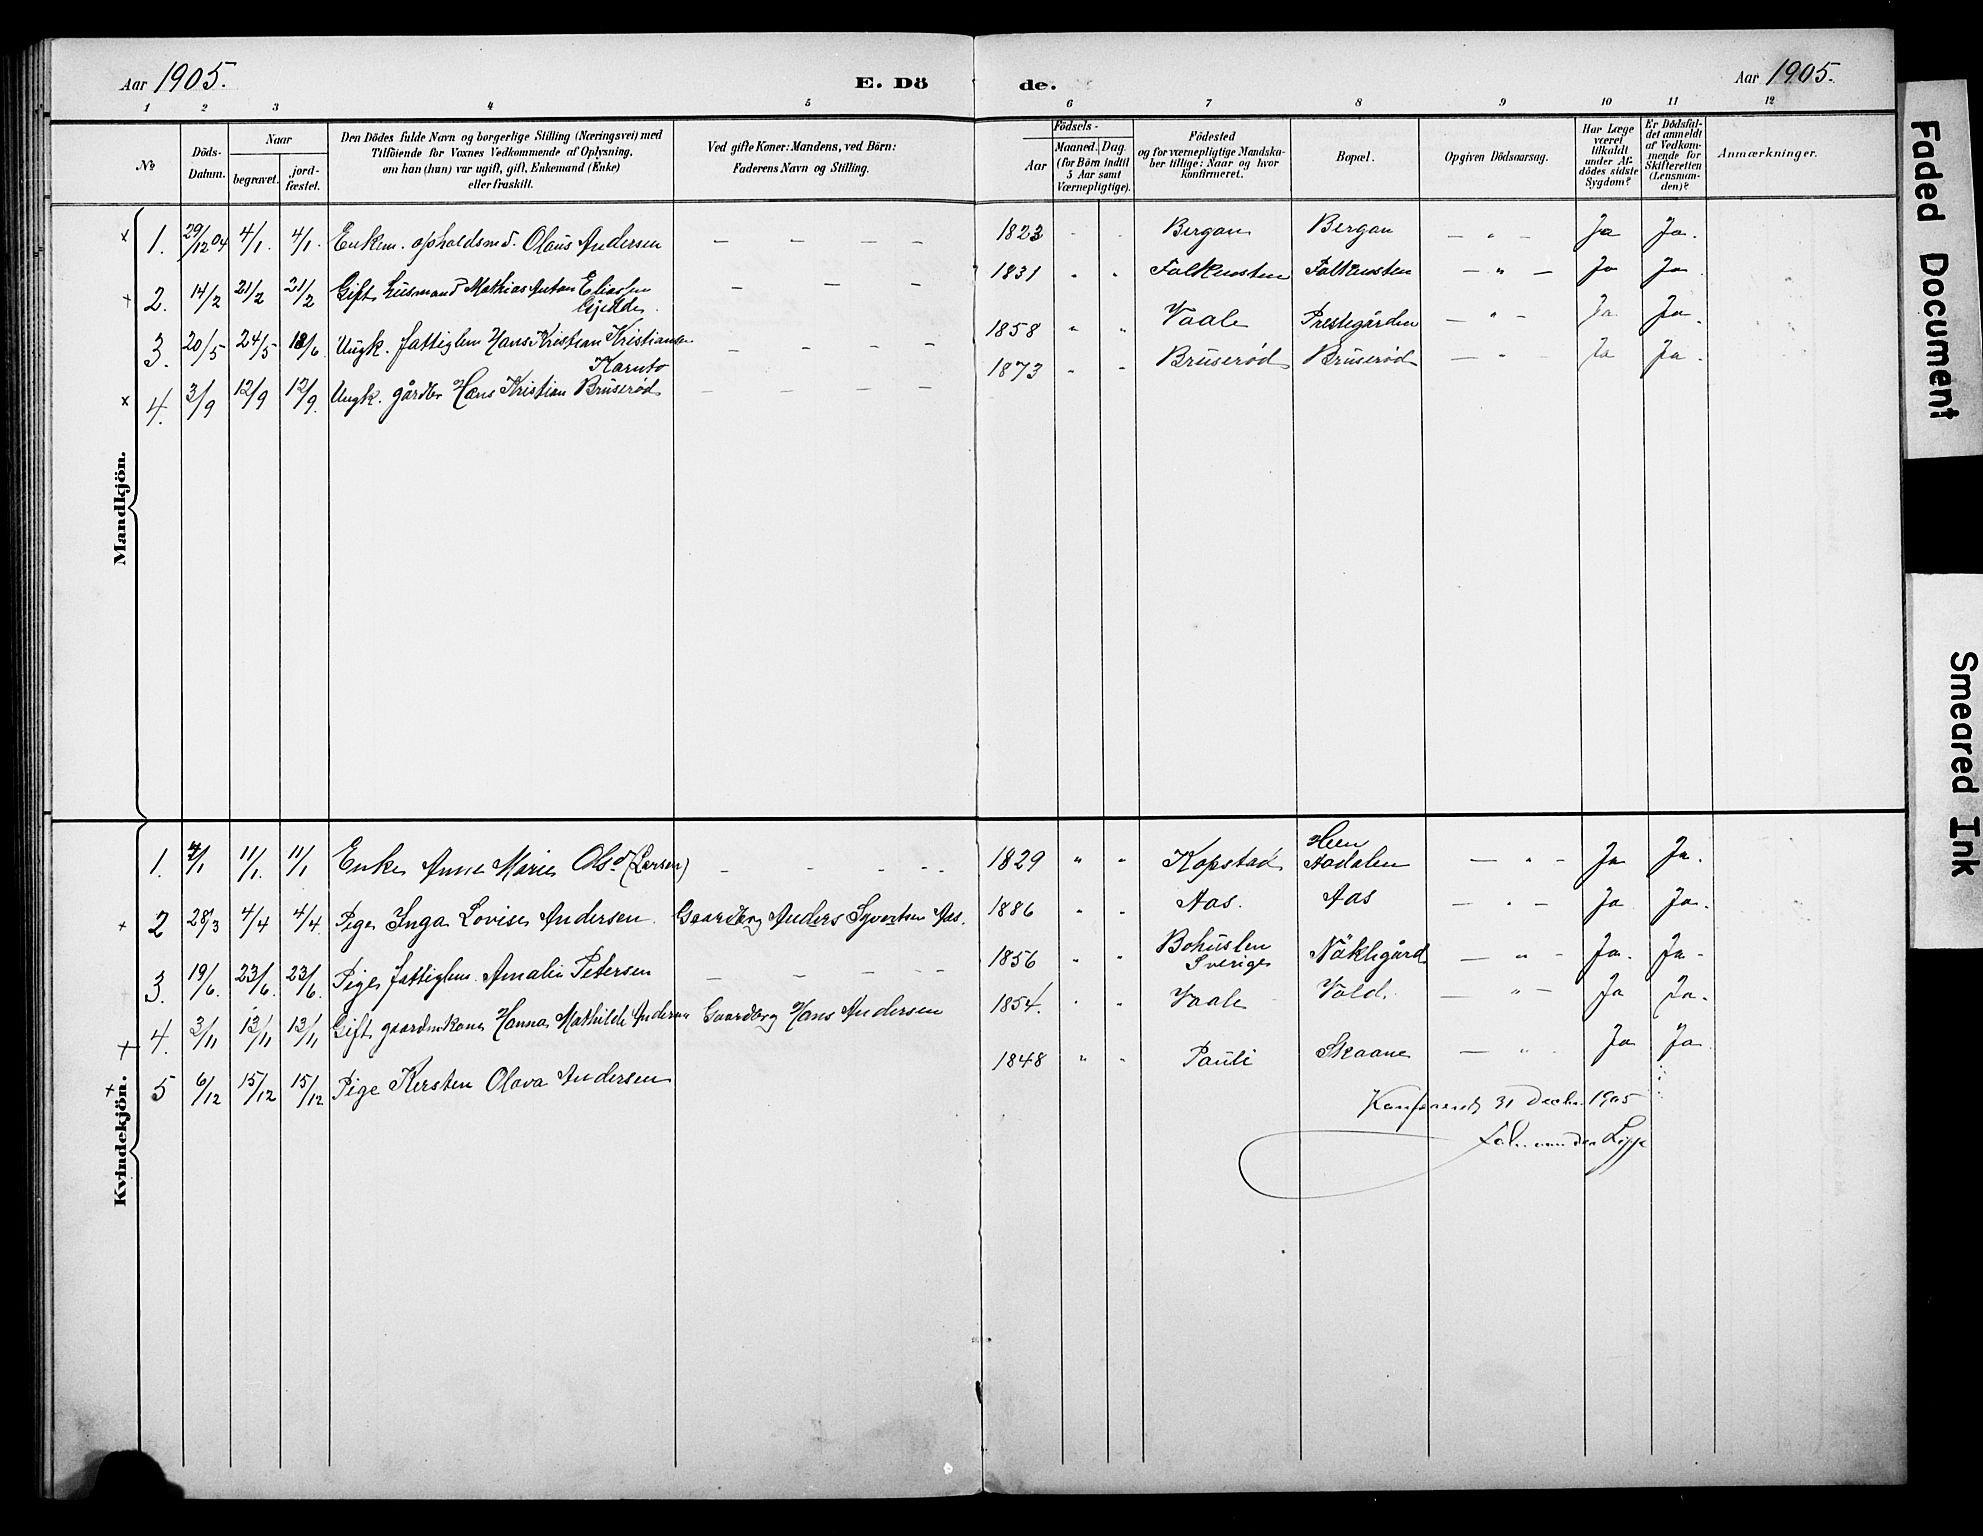 Aar 1905. E. Dö de. Aar 1905.
1 2 3 4 5 6 7 8 9 10 11 12
№
Döds-Datum.
Naar
begravet.
jord-fæstet.
Den Dödes fulde Navn og borgerlige Stilling (Næringsvei) med
Tilföiende for Voxnes Vedkommende af Oplysning,
om han (hun) var ugift, gift, Enkemand (Enke)
eller fraskilt.
Ved gifte Koner: Mandens, ved Börn:
Faderens Navn og Stilling.
Födsels-
Aar
Maaned. Dag.
(for Börn indtil
5 Aar samt
Værnepligtige).
Födested
og for værnepligtige Mandska-
ber tillige: Naar og hvor
konfirmeret.
Bopæl.
Opgiven Dödsaarsag.
Har Læge
været
tilkaldt
under Af-
dödes sidste
Sygdom?
Er Dödsfal-
det anmeldt
af Vedkom-
mende for
Skifteretten
(Lensman-
den)?
Anmærkninger.
Mandkjön.
x 1. 29/12 04 4/1. 4/1. Enkem. opholdsmd. Olaus Andersen — — — — 1823 " " Bergan Bergan — " — Ja Ja.
+ 2. 14/2 21/2 21/2 Gift husmand Mathias Anton Eliassen — — — 1831 " " Falkensten Falkensten — " — Ja Ja
Gjedde.
3. 20/5 24/5 18/6 Ungk. fattiglem Hans Kristian Kristiansen — — — — 1858 " " Vaale Prestegården — " — Ja Ja.
x 4. 3/9 12/9 12/9. Ungk. gårdbr Hans Kristian Bruserød — — — — 1873 " " Bruserød Bruserød — " — Ja Ja.
Kvindekjön.
1. 4/1 11/1. 11/1 Enke Anne Marie Olsd (Larsen) — — — — 1829 " " Kopstad Hem
Aadalen — " — Ja Ja.
+ 2 28/3 4/4 4/4. Pige Inga Lovise Andersen. Gaardbrg Anders Syvertsen Aas. 1886 " " Aas. Aas — " — Ja Ja.
3. 19/6. 23/6. 23/6. Pige fattiglem Amalie Petersen — — — — 1856 " " Bohuslen
Sverige Nökligård — " — Ja. Ja-
+ 4. 3/11 13/11 13/11 Gift gaardmkone Hanna Mathilde Andersen Gaardbrg Hans Andersen 1854. " " Vaale Vold. — " — Ja Ja.
+ 5 6/12 15/12 15/12 Pige Kersten Olava Andersen 1848 " " Pauli Skaane — " - Ja Ja
31 Decbr. 1905
Lippe
Faded Document
Smeared Ink